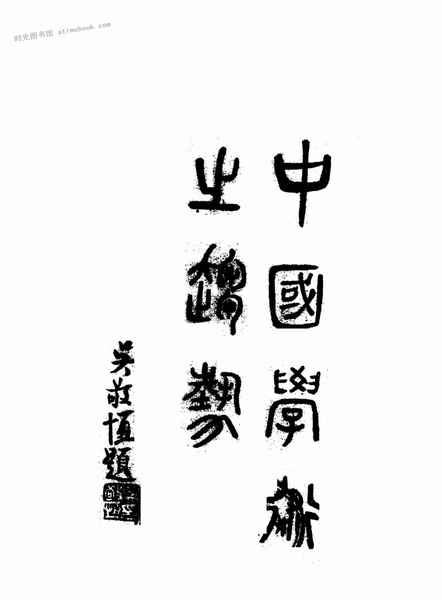 时光图书馆 atimebook.com
中國學術
之趨勢
吳敬恒題